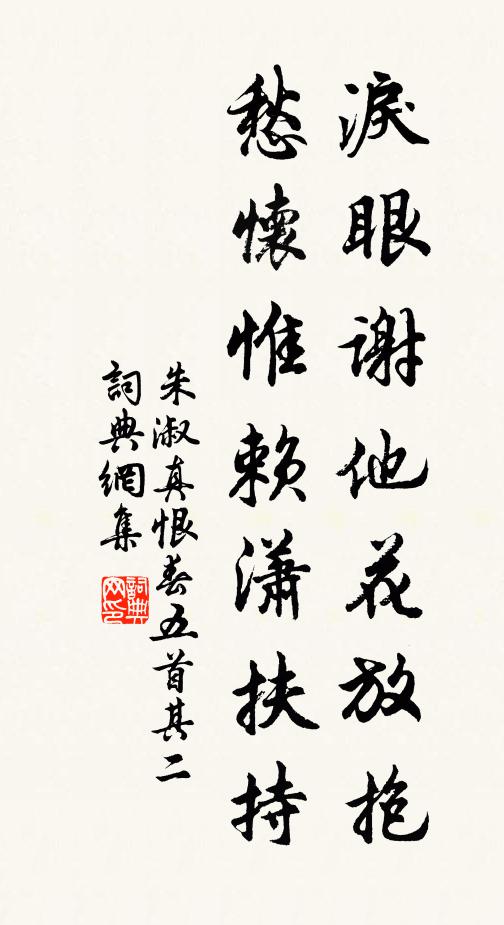 淚眼謝他花放抱
愁懷惟賴瀟扶持
朱淑真恨春五首其二
詞典網集
詞典網印